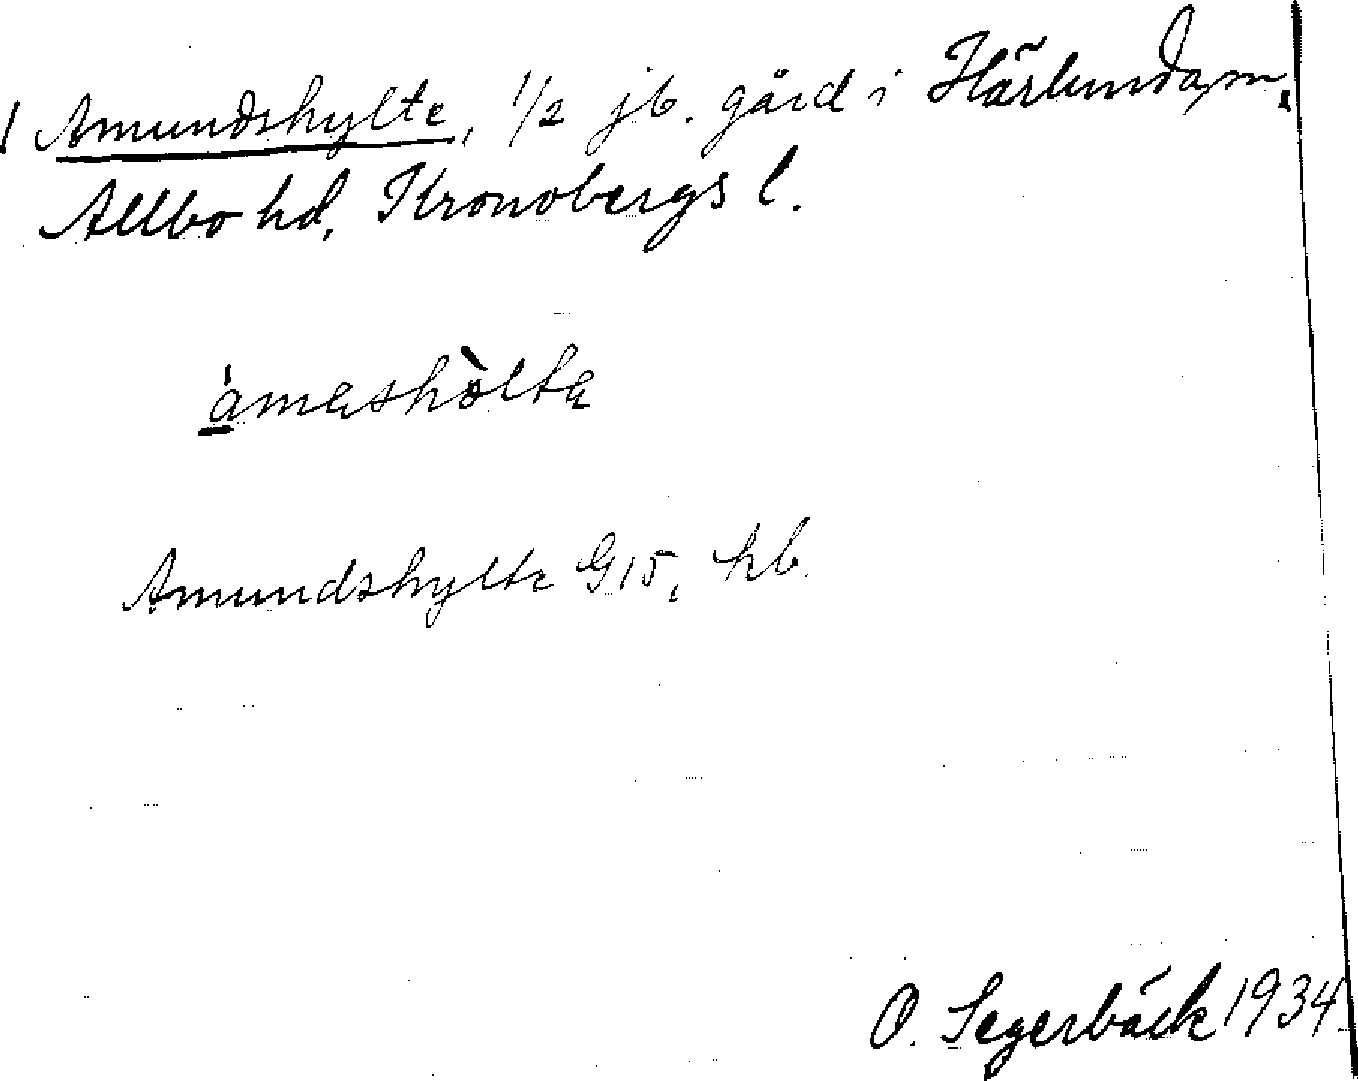 Amundshylte, 1/2 jb. gård i Härlunda sn,
Allbo hd, Kronobergs l.
àmashòlta
Amundshylte G15, hb.
O. Segerbäck 1934